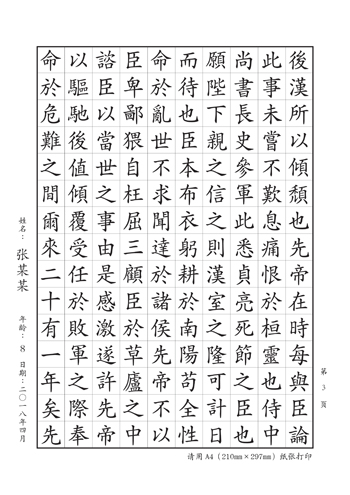 後漢所以傾頹也先帝在時每與臣論
此事未嘗不歎息痛恨於桓靈也侍中
尚書長史參軍此悉貞亮死節之臣也
願陛下親之信之則漢室之隆可計日
而待也臣本布衣躬耕於南陽苟全性
命於亂世不求聞達於諸侯先帝不以
臣卑鄙猥自枉屈三顧臣於草廬之中
諮臣以當世之事由是感激遂許先帝
以驅馳後值傾覆受任於敗軍之際奉
命於危難之間爾來二十有一年矣先
姓名：张某某 年龄：8 日期：二〇一八年四月
第 3 页
请用A4（210mm×297mm）纸张打印